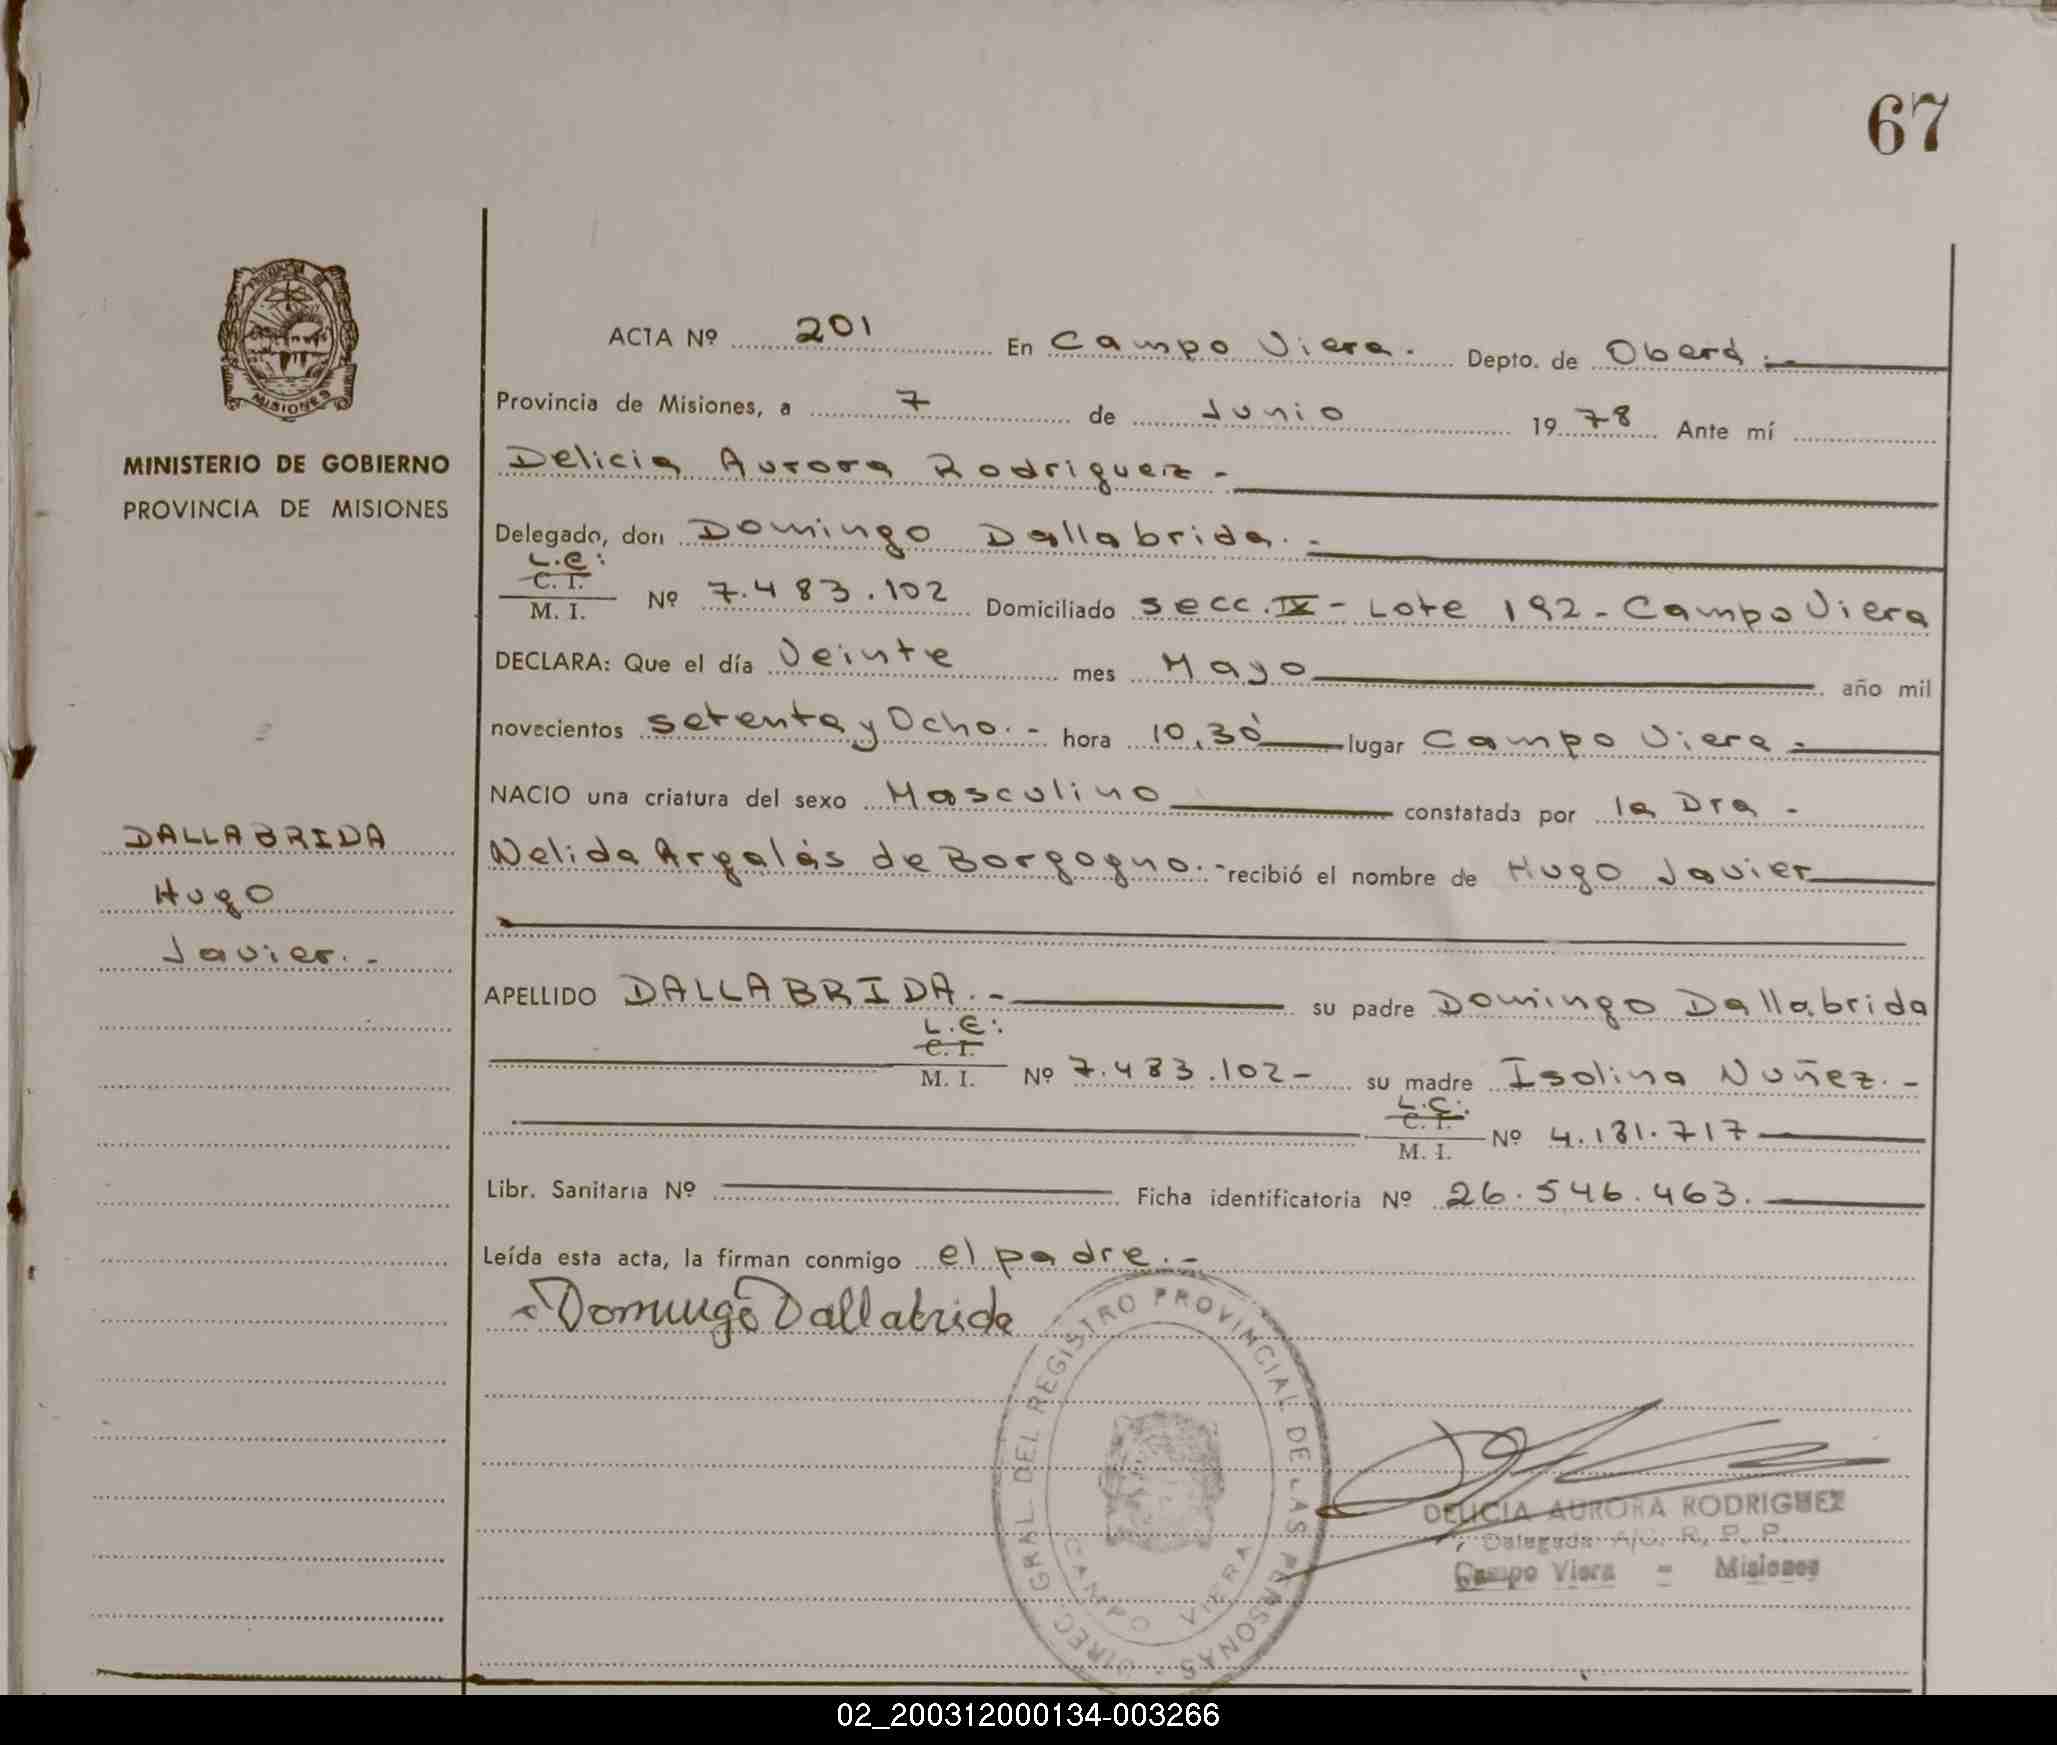 67
PROVINCIA DE
MISIONES
MINISTERIO DE GOBIERNO
PROVINCIA DE MISIONES
DALLABRIDA
Hugo
Javier.-
ACTA Nº 201 En Campo Viera. Depto. de Oberá.-
Provincia de Misiones, a 7 de Junio 1978 Ante mí
Delicia Aurora Rodriguez-
Delegado, don Domingo Dallabrida.-
L.E:
C. I.
M. I. Nº 7.483.102 Domiciliado secc. IX - Lote 192 - Campo Viera
DECLARA: Que el día Veinte mes Mayo año mil
novecientos setenta y Ocho.- hora 10,30 lugar Campo Viera-
NACIO una criatura del sexo Masculino constatada por la Dra -
Nelida Argalás de Borgogno.- recibió el nombre de Hugo Javier
APELLIDO DALLABRIDA.- su padre Domingo Dallabrida
L.E:
C. I.
M. I. Nº 7.483.102- su madre Isolina Nuñez.-
L.C:
C. I.
M. I. Nº 4.181.717
Libr. Sanitaria Nº Ficha identificatoria Nº 26.546.463.
Leída esta acta, la firman conmigo el padre.-
Domingo Dallabrida
DIREC. GRAL DEL REGISTRO PROVINCIAL DE LAS PERSONAS
CAMPO VIERA
DELICIA AURORA RODRIGUEZ
Delegada A/C. R. P. P.
Campo Viera - Misiones
02_200312000134-003266